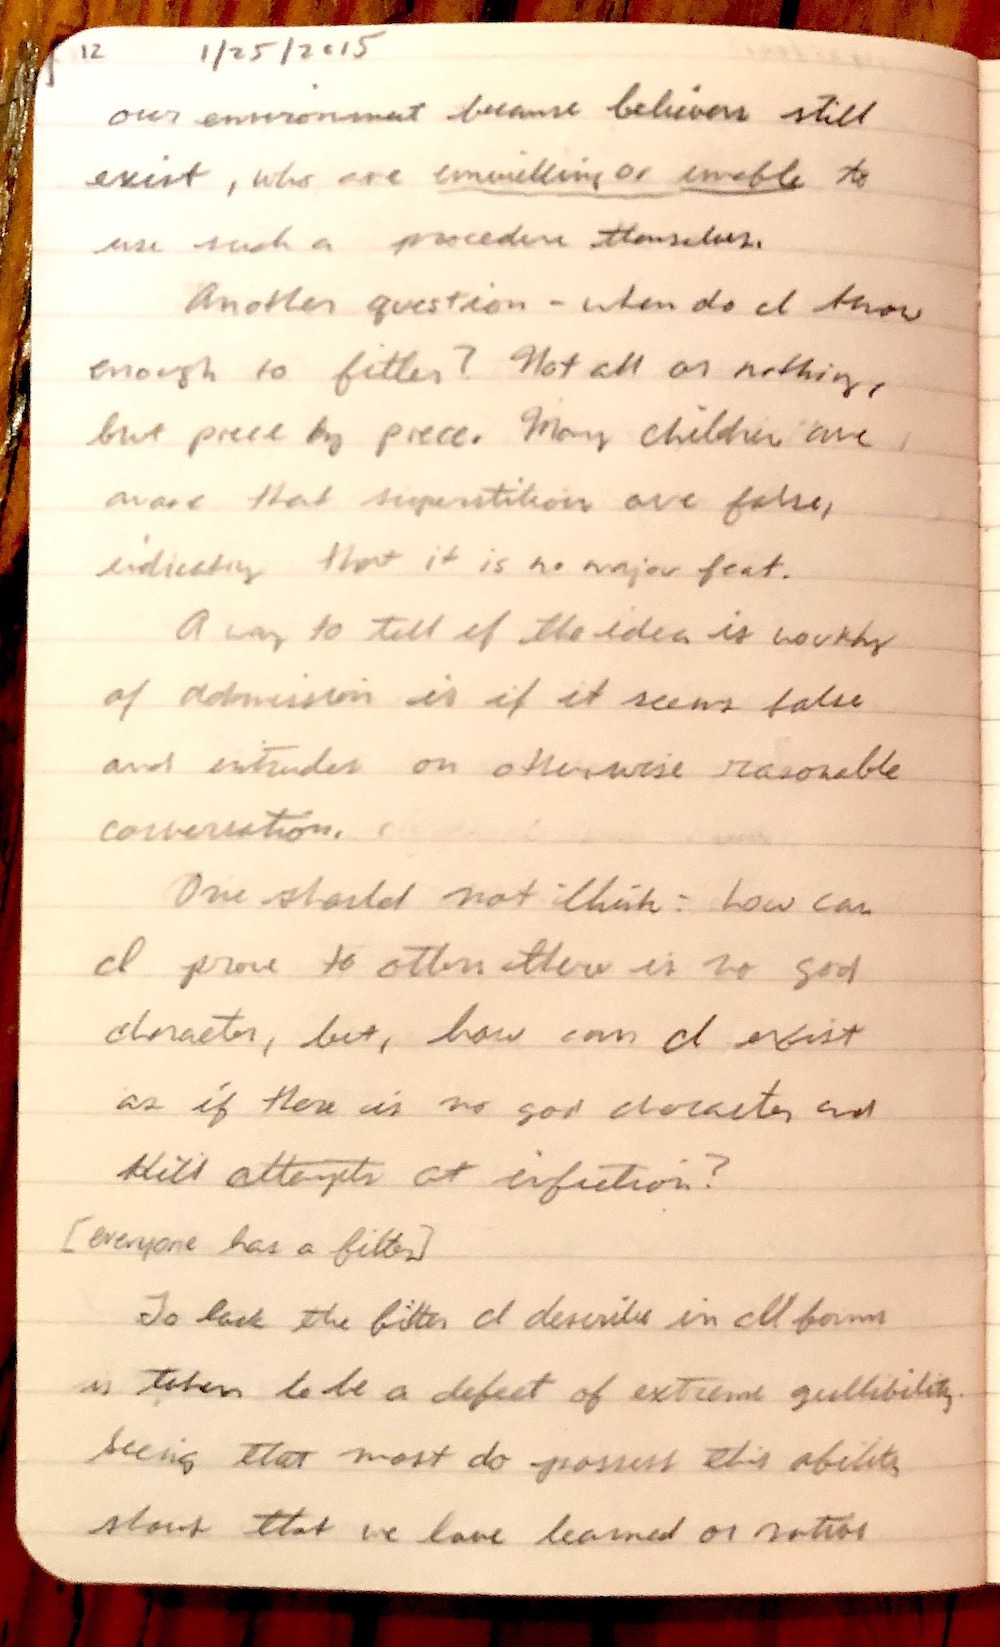 12 1/25/2015
our environment because believers still
exist, who are unwilling or unable to
use such a procedure themselves.
Another question - when do I know
enough to filter? Not all or nothing,
but piece by piece. Many children are
aware that superstitions are false,
indicating that it is no major feat.
A way to tell if the idea is worthy
of admission is if it seems false
and intrudes on otherwise reasonable
conversation.
One should not think: how can
I prove to others there is no god
character, but, how can I exist
as if there is no god character and
kill attempts at infection?
[everyone has a filter]
To lack the filter I describe in all forms
is taken to be a defect of extreme gullibility.
Seeing that most do possess this ability
shows that we have learned or native